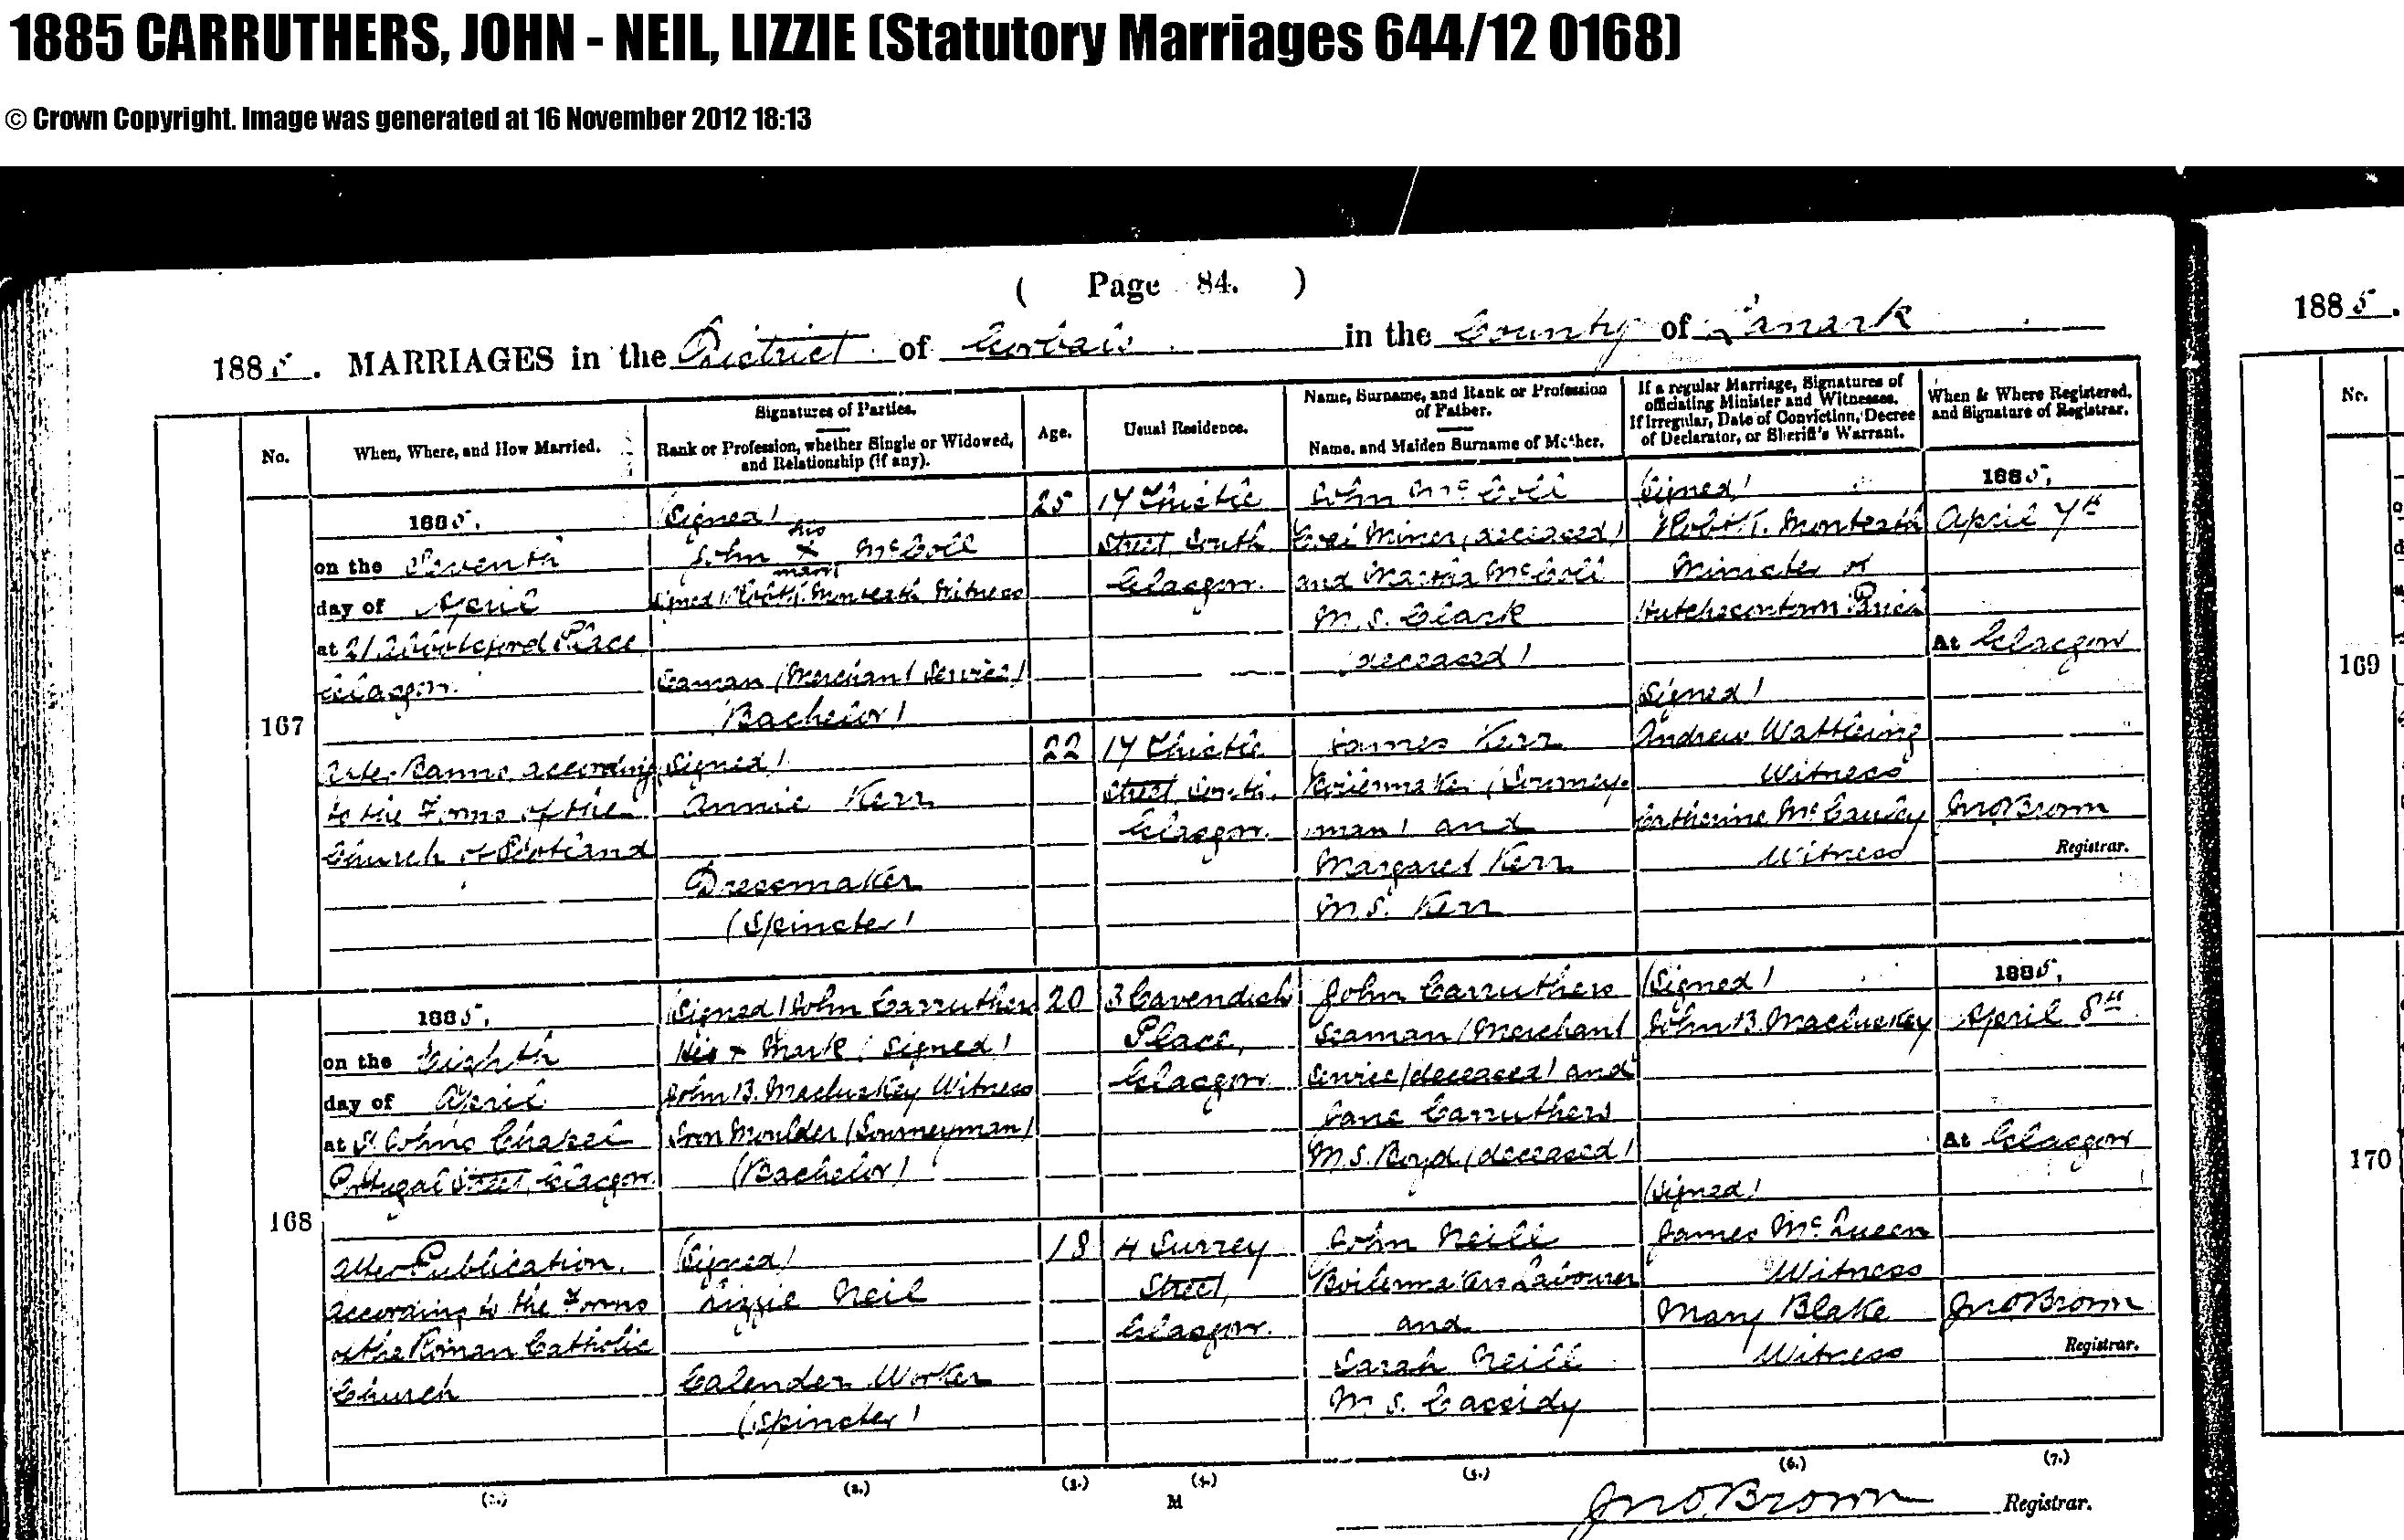 1885 CARRUTHERS, JOHN - NEIL, LIZZIE (Statutory Marriages 644/12 0168)
© Crown Copyright. Image was generated at 16 November 2012 18:13
( Page 84. )
1885. MARRIAGES in the District of Gorbals in the County of Lanark
1885.
No.
When, Where, and How Married.
Signatures of Parties.
Rank or Profession, whether Single or Widowed,
and Relationship (if any).
Age.
Usual Residence.
Name, Surname, and Rank or Profession
of Father.
Name, and Maiden Surname of Mother.
If a regular Marriage, Signatures of
officiating Minister and Witnesses.
If Irregular, Date of Conviction, Decree
of Declarator, or Sheriff's Warrant.
When & Where Registered,
and Signature of Registrar.
No.
167
1885.
on the Seventh
day of April
at 21 Place
Glasgow.
After Banns according
to the Forms of the
Church of Scotland
(Signed)
his
John x McColl
mark
(Signed) Robt. T. Monteath Witness
Seaman (Merchant Service)
(Bachelor)
25
17 Thistle
Street, South
Glasgow.
John McColl
Coal Miner (deceased)
and Martha McColl
M.S. Clark
(deceased)
(Signed)
Robt. T. Monteath
Minister of
Hutchesontown Parish
1885.
April 7th
At Glasgow
(Signed)
Annie Kerr
Dressmaker
(Spinster)
22
17 Thistle
Street, South.
Glasgow.
James Kerr
Boilermaker (Journey-
man) and
Margaret Kerr
M.S. Kerr
(Signed)
Andrew Wattleing
Witness
Catherine McCauley
Witness
Jno Brown
Registrar.
168
1885.
on the Eighth
day of April
at St. Johns Chapel
Portugal Street, Glasgow.
After Publication,
according to the Forms
of the Roman Catholic
Church
(Signed) John Carruthers
His x Mark (Signed)
John B. Macluskey Witness
Iron Moulder (Journeyman)
(Bachelor)
20
3 Cavendish
Place,
Glasgow
John Carruthers
Seaman (Merchant
Service) (deceased) and
Jane Carruthers
M.S. Boyd (deceased)
(Signed)
John B. Macluskey
1885.
April 8th
At Glasgow
(Signed)
Lizzie Neil
Calender Worker
(Spinster)
18
4 Surrey
Street,
Glasgow.
John Neill
Boilermakers Labourer
and
Sarah Neill
M.S. Cassidy
(Signed)
James McQueen
Witness
Mary Blake
Witness
Jno Brown
Registrar.
169
170
(2.)
(3.)
(4.)
(5.)
(6.)
(7.)
M
Jno Brown Registrar.